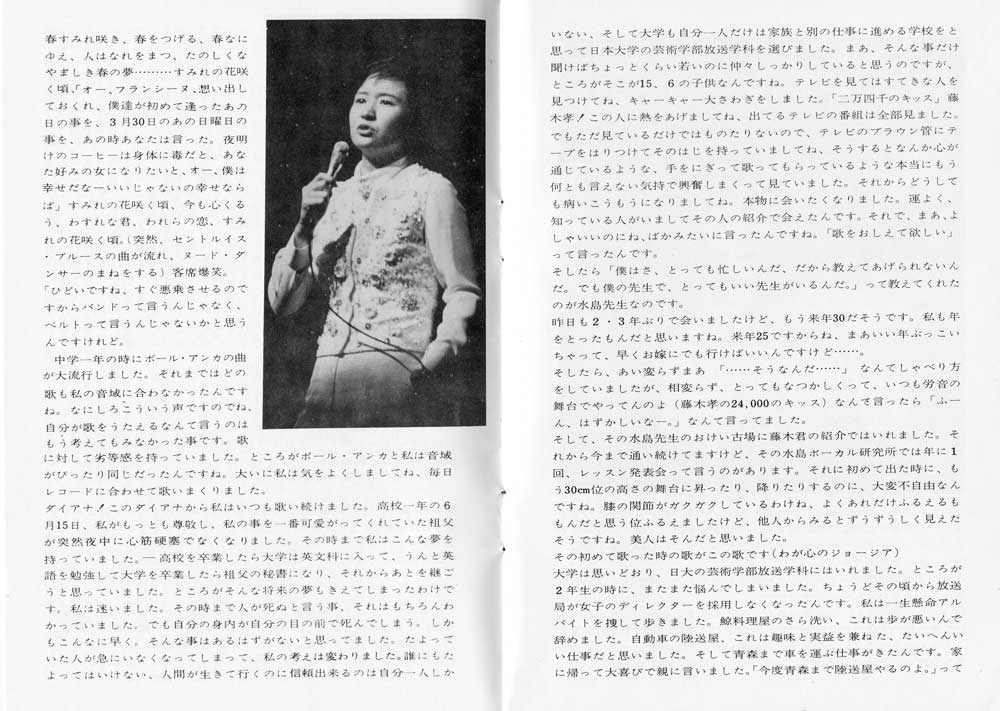 春すみれ咲き、春をつげる、春なに
ゆえ、人はなれをまつ、たのしくな
やましき春の夢………すみれの花咲
く頃、「オー、フランシーヌ、想い出し
ておくれ、僕達が初めて逢ったあの
日の事を、3月30日のあの日曜日の
事を、あの時あなたは言った。夜明
けのコーヒーは身体に毒だと、あな
た好みの女になりたいと、オー、僕は
幸せだなーいいじゃないの幸せなら
ば」すみれの花咲く頃、今も心くる
う、わすれな君、われらの恋、すみ
れの花咲く頃。(突然、セントルイス
・ブルースの曲が流れ、ヌード・ダ
ンサーのまねをする) 客席爆笑。
「ひどいですね、すぐ悪乗させるので
すからバンドって言うんじゃなく、
ベルトって言うんじゃないかと思う
んですけれど。
中学一年の時にポール・アンカの曲
が大流行しました。それまではどの
歌も私の音域に合わなかったんです
ね。なにしろこういう声ですのでね、
自分が歌をうたえるなんて言うのは
もう考えてもみなかった事です。歌
に対して劣等感を持っていました。ところがポール・アンカと私は音域
がぴったり同じだったんですね。大いに私は気をよくしましてね、毎日
レコードに合わせて歌いまくりました。
ダイアナ!このダイアナから私はいつも歌い続けました。高校一年の6
月15日、私がもっとも尊敬し、私の事を一番可愛がってくれていた祖父
が突然夜中に心筋硬塞でなくなりました。その時まで私はこんな夢を
持っていました。—高校を卒業したら大学は英文科に入って、うんと英
語を勉強して大学を卒業したら祖父の秘書になり、それからあとを継ご
うと思っていました。ところがそんな将来の夢もきえてしまったわけで
す。私は迷いました。その時まで人が死ぬと言う事、それはもちろんわ
かっていました。でも自分の身内が自分の目の前で死んでしまう。しか
もこんなに早く。そんな事はあるはずがないと思ってました。たよって
いた人が急にいなくなってしまって、私の考えは変わりました。誰にもた
よってはいけない、人間が生きて行くのに信頼出来るのは自分一人しか
いない、そして大学も自分一人だけは家族と別の仕事に進める学校をと
思って日本大学の芸術学部放送学科を選びました。まあ、そんな事だけ
聞けばちょっとくらい若いのに仲々しっかりしていると思うのですが、
ところがそこが15、6の子供なんですね。テレビを見てはすてきな人を
見つけてね、キャーキャー大さわぎをしました。「二万四千のキッス」藤
木孝!この人に熱をあげましてね、出てるテレビの番組は全部見ました。
でもただ見ているだけではものたりないので、テレビのブラウン管にテ
ープをはりつけてそのはじを持っていましてね、そうするとなんか心が
通じているような、手をにぎって歌ってもらっているような本当にもう
何とも言えない気持で興奮しまくって見ていました。それからどうして
も病いこうもうになりましてね。本物に会いたくなりました。運よく、
知っている人がいましてその人の紹介で会えたんです。それで、まあ、よ
しゃいいのにね、ばかみたいに言ったんですね。「歌をおしえて欲しい」
って言ったんです。
そしたら「僕はさ、とっても忙しいんだ、だから教えてあげられないん
だ。でも僕の先生で、とってもいい先生がいるんだ。」って教えてくれた
のが水島先生なのです。
昨日も2・3年ぶりで会いましたけど、もう来年30だそうです。私も年
をとったもんだと思いますね。来年25ですからね、まあいい年ぶっこい
ちゃって、早くお嫁にでも行けばいいんですけど……。
そしたら、あい変らずまあ 「……そうなんだ……」 なんてしゃべり方
をしていましたが、相変らず、とってもなつかしくって、いつも労音の
舞台でやってんのよ (藤木孝の24,000のキッス) なんで言ったら「ふー
ん、はずかしいなー。」なんて言ってました。
そして、その水島先生のおけい古場に藤木君の紹介ではいれました。そ
れから今まで通い続けてますけど、その水島ボーカル研究所では年に1
回、レッスン発表会って言うのがあります。それに初めて出た時に、も
う30cm位の高さの舞台に昇ったり、降りたりするのに、大変不自由なん
ですね。膝の関節がガクガクしているわけね、よくあれだけふるえるも
もんだと思う位ふるえましたけど、他人からみるとずうずうしく見えた
そうですね。美人はそんだと思いました。
その初めて歌った時の歌がこの歌です(わが心のジョージア)
大学は思いどおり、日大の芸術学部放送学科にはいれました。ところが
2年生の時に、またまた悩んでしまいました。ちょうどその頃から放送
局が女子のディレクターを採用しなくなったんです。私は一生懸命アル
バイトを捜して歩きました。鯨料理屋のさら洗い、これは歩が悪いんで
辞めました。自動車の陸送屋、これは趣味と実益を兼ねた、たいへんい
い仕事だと思いました。そして青森まで車を運ぶ仕事がきたんです。家
に帰って大喜びで親に言いました。「今度青森まで陸送屋やるのよ。」って